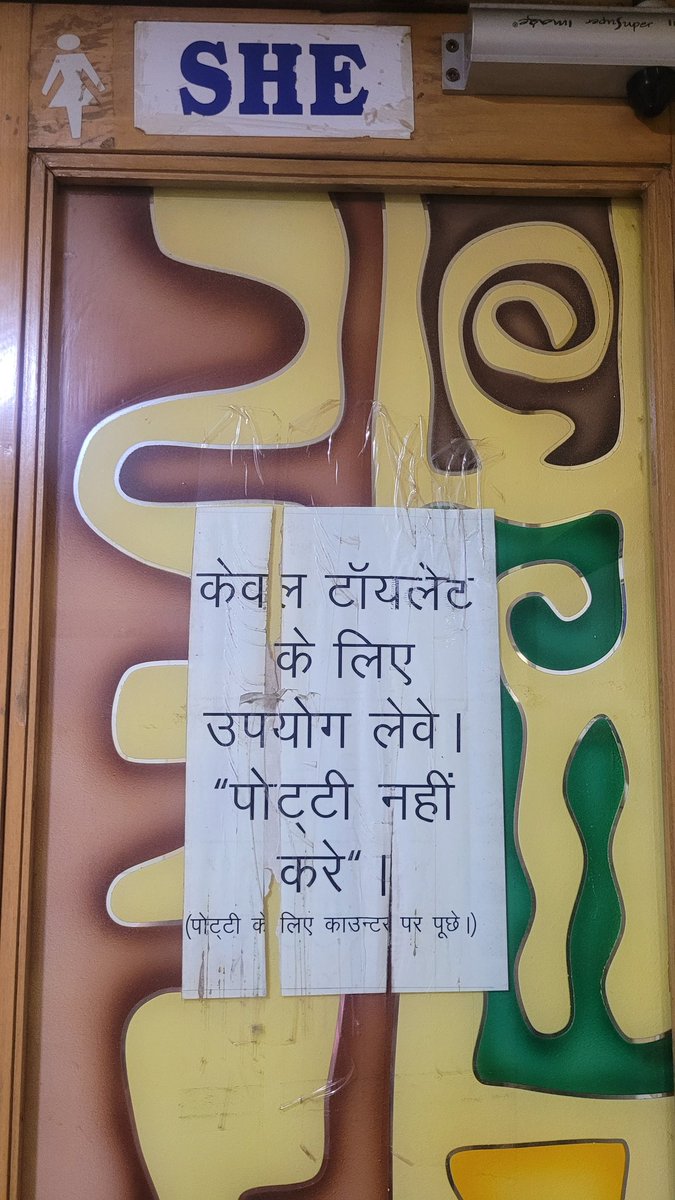 SHE
Super Image
केवल टॉयलेट
के लिए
उपयोग लेवे।
“पोट्टी नहीं
करे“।
(पोट्टी के लिए काउन्टर पर पूछे।)